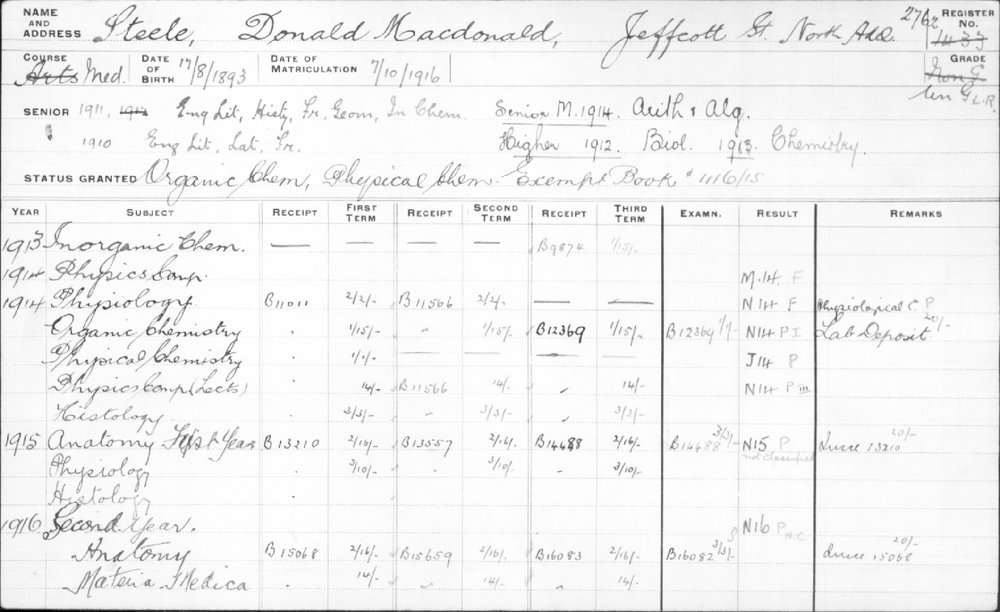 NAME AND ADDRESS Steele, Donald Macdonald, Jeffcott St. North Adel. 2762 REGISTER No. 1433
COURSE Arts Med. DATE OF BIRTH 17/8/1893 DATE OF MATRICULATION 7/10/1916 GRADE Non G Un G L.R.
SENIOR 1911, 1912 Eng Lit, Histy, Fr. Geom, In Chem. Senior M. 1914. Arith & Alg.
" 1910 Eng Lit, Lat, Fr. Higher 1912. Biol. 1913. Chemistry.
STATUS GRANTED Organic Chem, Physical Chem. Exempt Book 1116/15
YEAR SUBJECT RECEIPT FIRST TERM RECEIPT SECOND TERM RECEIPT THIRD TERM EXAMN. RESULT REMARKS
1913 Inorganic Chem. — — — — B9874 1/15/-
1914 Physics Comp. M.14 F
1914 Physiology B11011 2/2/- B11566 2/2/- — — N14 F Physiological C. P
Organic Chemistry " 1/15/- " 1/15/- B12369 1/15/- B12369 1/1/- N14 P I Lab Deposit 20/-
Physical Chemistry " 1/1/- — — — — J14 P
Physics Comp (Lects) " 14/- B11566 14/- " 14/- N14 P III
Histology " 3/3/- " 3/3/- " 3/3/-
1915 Anatomy First Year B13210 2/16/- B13557 2/16/- B14488 2/16/- B14488 3/3/- N15 P not classified 13210 20/-
Physiology " 3/10/- 3/10/- 3/10/-
Histology "
1916 Second Year. N16 P N.C.
Anatomy B15068 2/16/- B15659 2/16/- B16083 2/16/- B16082 3/3/- 15068 20/-
Materia Medica 14/- " 14/- " 14/-